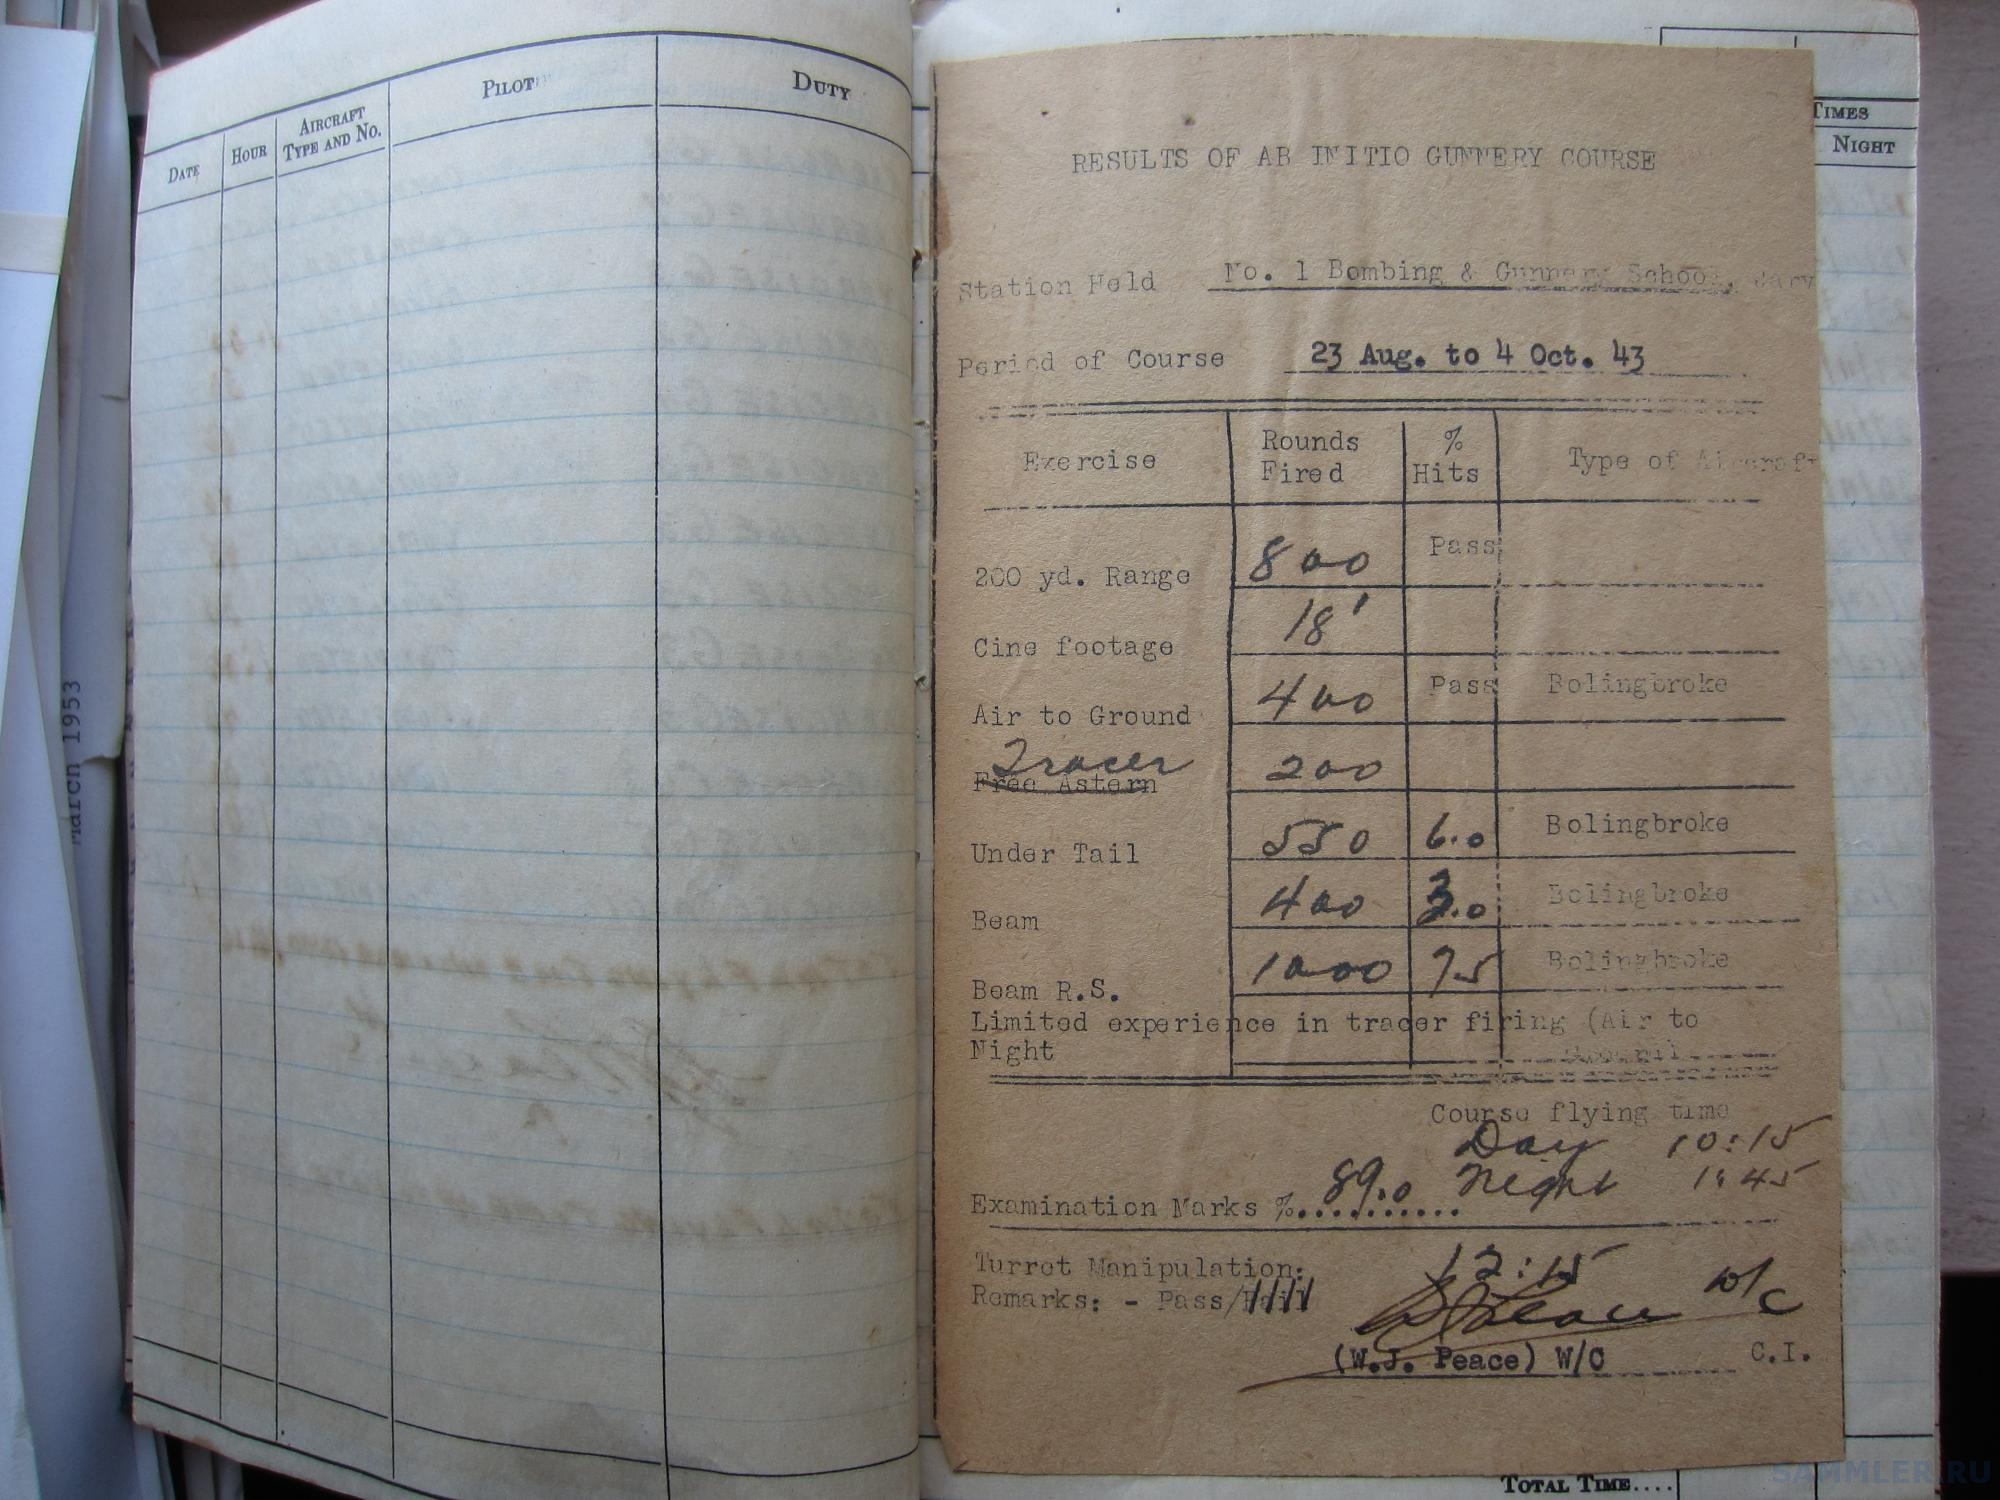 DATE HOUR AIRCRAFT TYPE AND No. PILOT DUTY
March 1953
TIMES
NIGHT
RESULTS OF AB INITIO GUNNERY COURSE
Station Held No. 1 Bombing & Gunnery School, Jarv
Period of Course 23 Aug. to 4 Oct. 43
Exercise Rounds Fired % Hits Type of Aircraft
200 yd. Range 800 Pass
Cine footage 18'
Air to Ground 400 Pass Bolingbroke
Tracer
Free Astern 200
Under Tail 550 6.0 Bolingbroke
Beam 400 3.0 Bolingbroke
Beam R.S. 1000 7.5 Bolingbroke
Limited experience in tracer firing (Air to
Night
Course flying time
Day 10:15
Examination Marks %.......... 89.0 Night 1:45
Turret Manipulation: 12:15
Remarks: - Pass/Fail W/C
(W.J. Peace) W/C C.I.
TOTAL TIME....
SAMMLER.RU